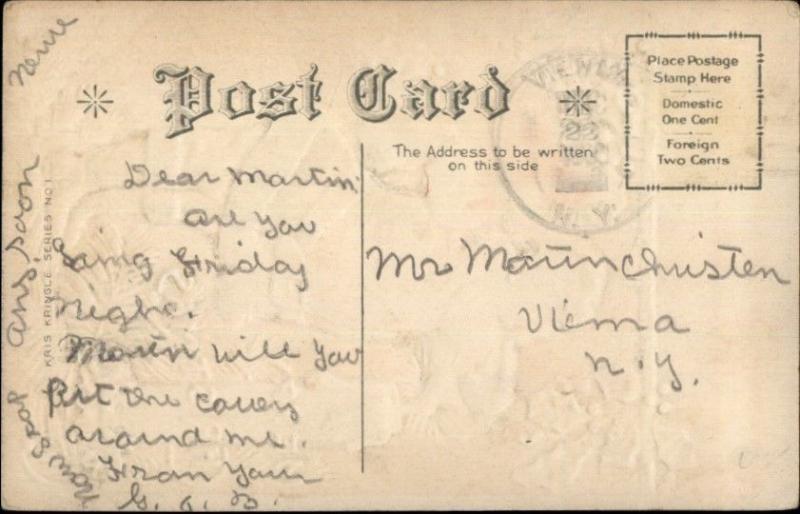 Post Card
Place Postage
Stamp Here
Domestic
One Cent
Foreign
Two Cents
The Address to be written
on this side
VIENNA
22
N.Y.
KRIS KRINGLE SERIES NO 1
Dear Martin.
are you
Going Friday
neght.
Martin will you
Put the
around me.
From your
G. A. B.
ans, soon
Mr Martin Christen
Vienna
N.Y.